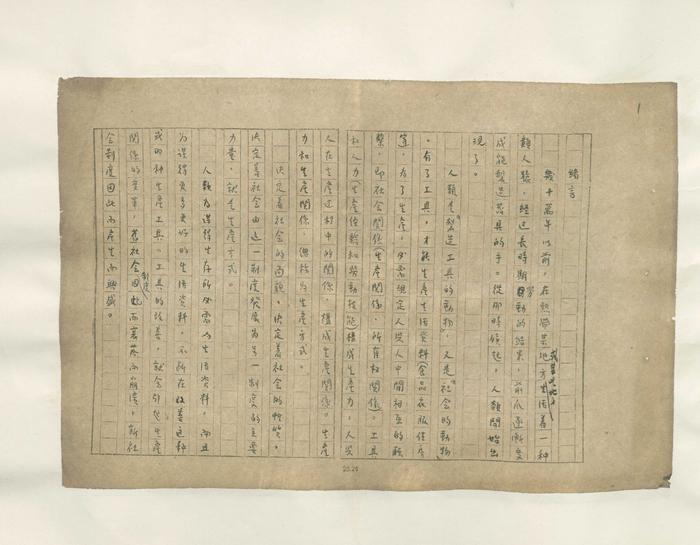 1
緒言
幾十萬年以前，在熱帶某地方生活着一種
類人猿，經過長時期勞動的結果，前爪逐漸變
成能製造器具的手。從那時候起，人類開始出
現了。
人類是"製造工具的動物"，又是"社會的動物"
。有了工具，才能生產生活資料(食品衣服住房
等，為了生產，必需規定人與人中間相互的聯
繫，即社會關係(生產關係，所有權關係)。工具
和人力(生產經驗和勞動技能構成生產力，人與
人在生產過程中的關係，構成生產關係。生產
力和生產關係，總稱為生產方式。
決定着社會的面貌，決定着社會的性質，
決定着社會由這一制度發展為另一制度的主要
力量，就是生產方式。
人類為獲得生存所必需的生活資料，而且
為獲得更多更好的生活資料，不斷在改善這種
或那種生產工具。工具的改善，就會引起生產
關係的變革，舊社會制度因此而衰落而崩潰，新社
會制度因此而產生而興盛。
20.20